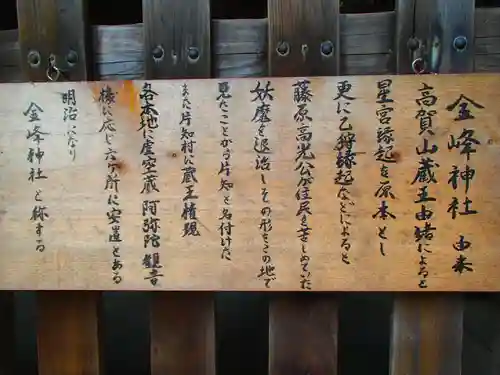 金峰神社 由来
高賀山蔵王由緒によると
星宮縁起を原本とし
更に乙狩縁起などによると
藤原高光公が住民を苦しめていた
妖魔を退治しその形をこの地で
見たことから片知と名付けた
また片知村に蔵王権現
各木地に虚空蔵 阿弥陀 観音
様に応じ六ヶ所に安置とある
明治になり
金峰神社と称する